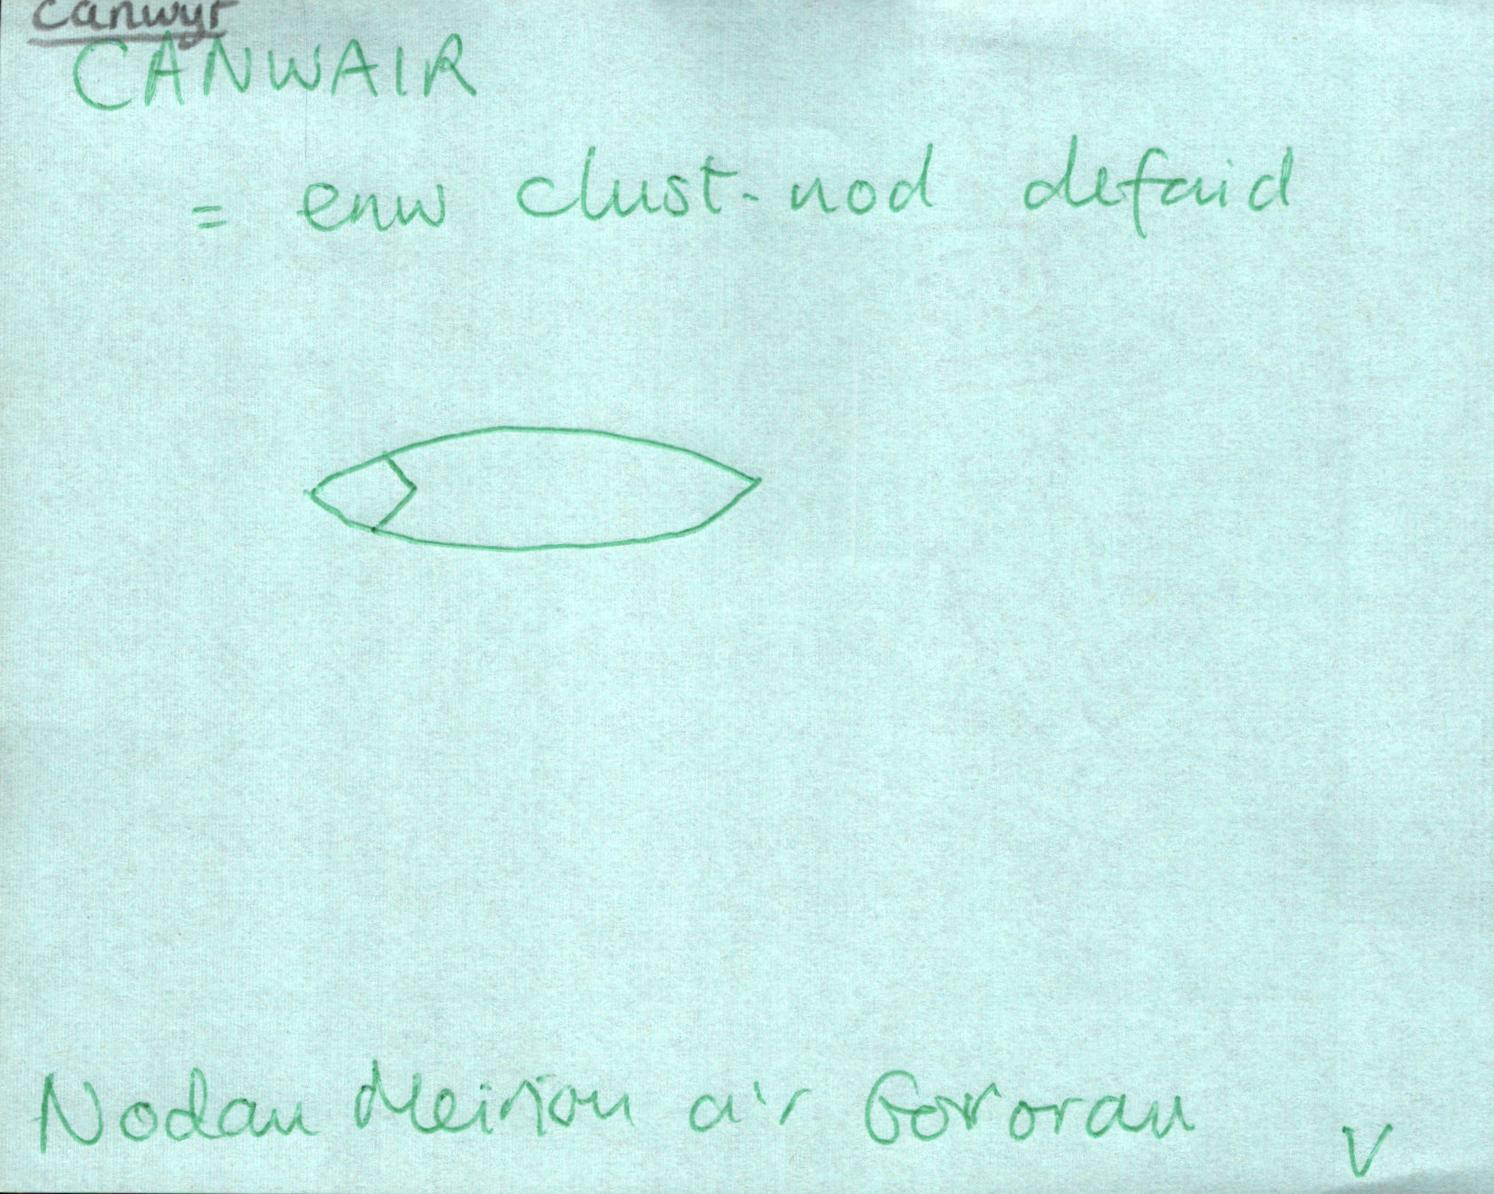 canwyr
CANWAIR
= enw clust-nod defaid
Nodau Meirion a'r Gororau V